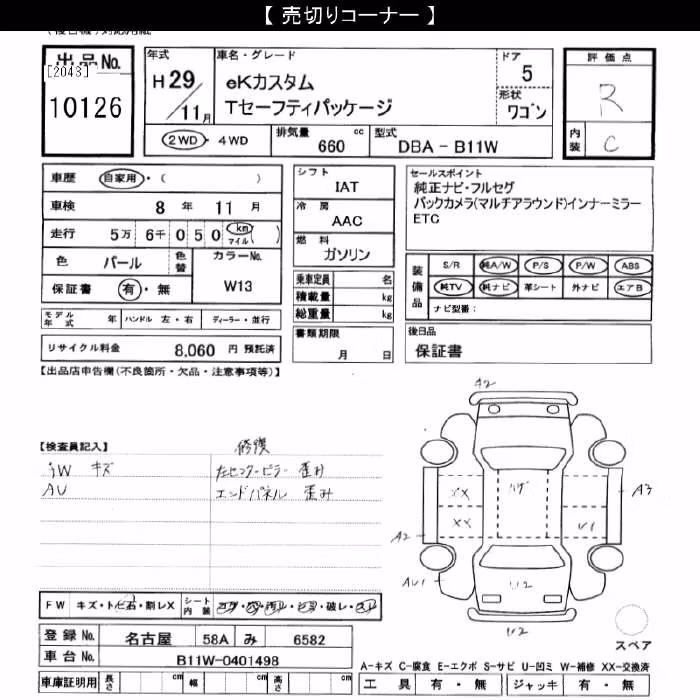 【 売切りコーナー 】
出品No. [2043] 10126
年式 H29/11月
車名・グレード eKカスタム Tセーフティパッケージ
ドア 5
形状 ワゴン
評価点 R
内装 C
2WD・4WD
排気量 660 cc
型式 DBA-B11W
車歴 自家用・( )
車検 8年 11月
走行 5万 6千 050 km マイル( )
色 パール 色替 カラーNo. W13
保証書 有・無
シフト IAT
冷房 AAC
燃料 ガソリン
乗車定員 名
積載量 kg
総重量 kg
セールスポイント
純正ナビ・フルセグ
バックカメラ(マルチアラウンド)インナーミラー
ETC
装備品 S/R 純A/W P/S P/W ABS
純TV 純ナビ 革シート 外ナビ エアB
ナビ型番:
モデル年式 年 ハンドル 左・右 ディーラー・並行
書類期限 月 日
後日品 保証書
リサイクル料金 8,060 円 預託済
【出品店申告欄(不良箇所・欠品・注意事項等)】
A2
【検査員記入】 修復
キズ
左センターピラー 歪み
エンドパネル 歪み
XX
A3
XX
U1
A2
U2
U2
FW キズ・トビ石・割レX シート内装
破レ
スペア
登録No. 名古屋 58A み 6582
車台No. B11W-0401498
A-キズ C-腐食 E-エクボ S-サビ U-凹ミ W-補修 XX-交換済
車庫証明用 長さ cm 幅 cm 高さ cm
工具 有・無 ジャッキ 有・無